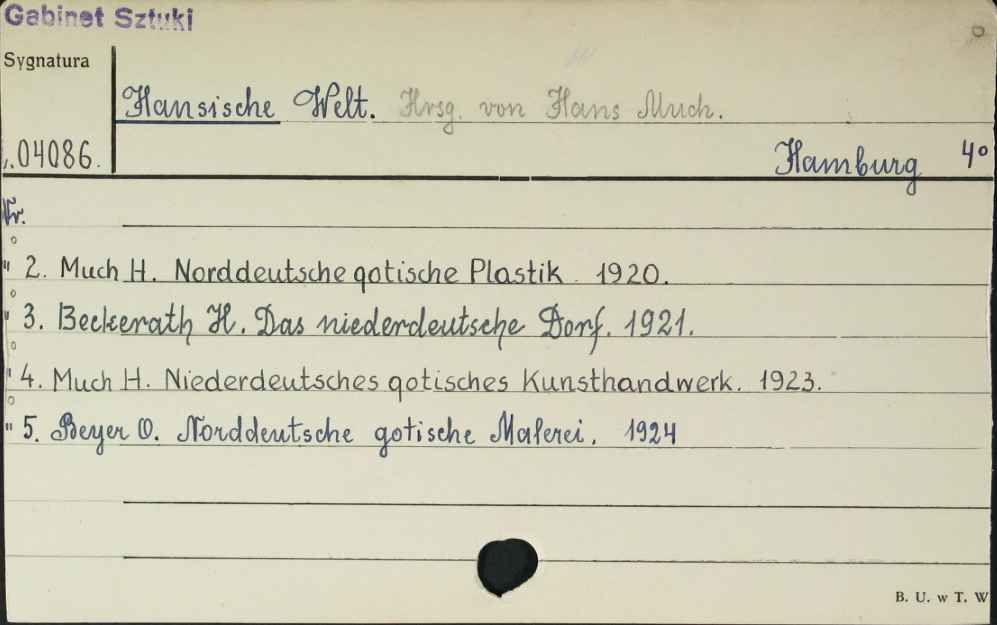 Gabinet Sztuki
Sygnatura
Hansische Welt. Hrsg. von Hans Much.
04086.
Hamburg 4°
Nr.
" 2. Much H. Norddeutsche gotische Plastik. 1920.
" 3. Beckerath H. Das niederdeutsche Dorf. 1921.
" 4. Much H. Niederdeutsches gotisches Kunsthandwerk. 1923.
" 5. Beyer O. Norddeutsche gotische Malerei. 1924
B. U. w T. W